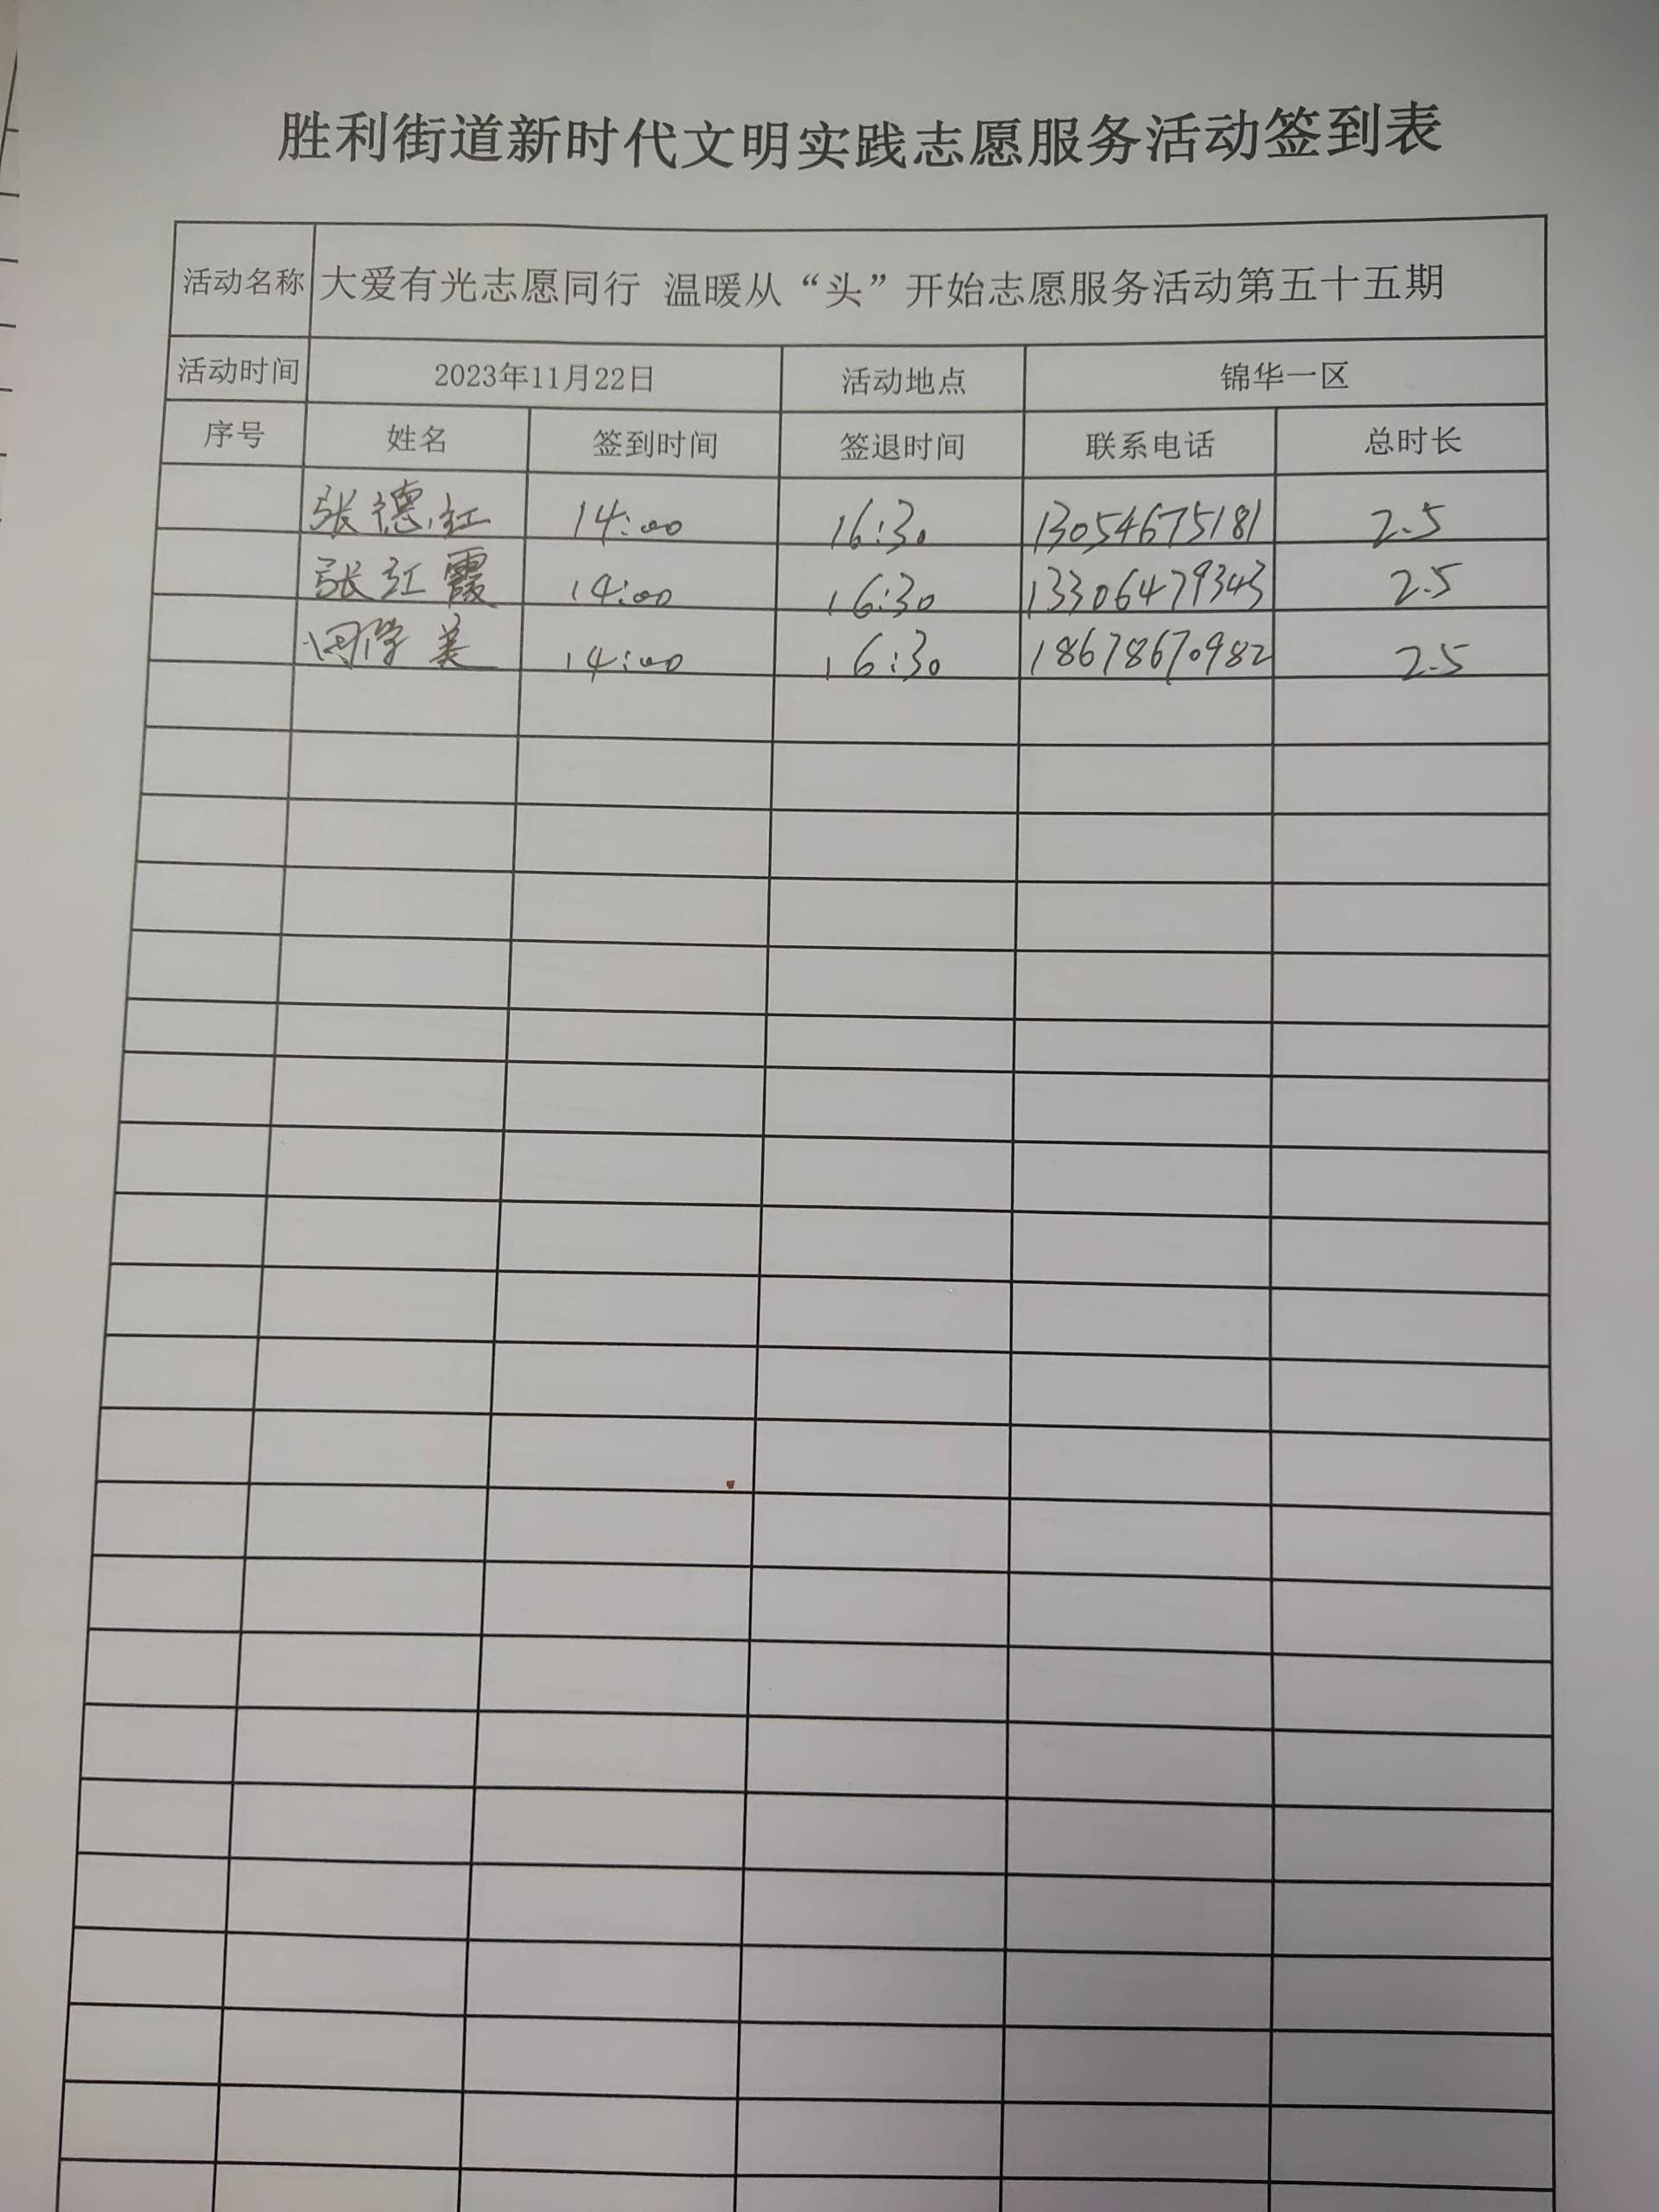 胜利街道新时代文明实践志愿服务活动签到表
活动名称 大爱有光志愿同行 温暖从“头”开始志愿服务活动第五十五期
活动时间 2023年11月22日 活动地点 锦华一区
序号 姓名 签到时间 签退时间 联系电话 总时长
张德红 14:00 16:30 13054675181 2.5
张红霞 14:00 16:30 13306479343 2.5
14:00 16:30 18678670982 2.5